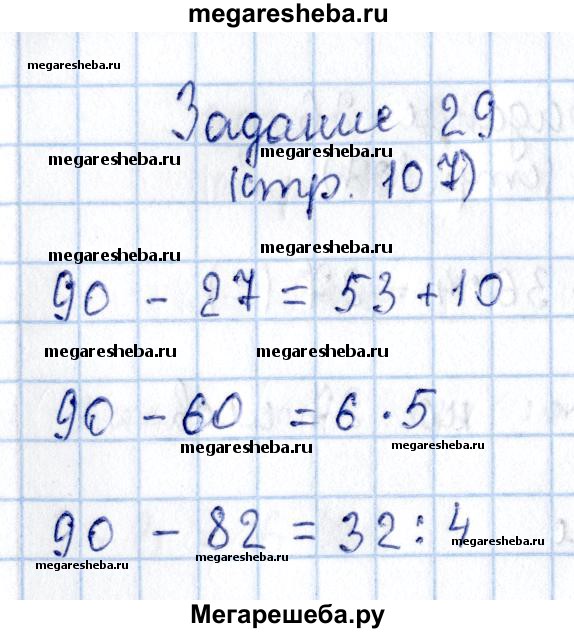 megaresheba.ru
megaresheba.ru
Задание 29
megaresheba.ru megaresheba.ru
(стр. 107)
megaresheba.ru megaresheba.ru
90 - 27 = 53 + 10
megaresheba.ru megaresheba.ru
90 - 60 = 6 · 5
megaresheba.ru megaresheba.ru
90 - 82 = 32 : 4
megaresheba.ru megaresheba.ru megaresheba.ru
Мегарешеба.ру